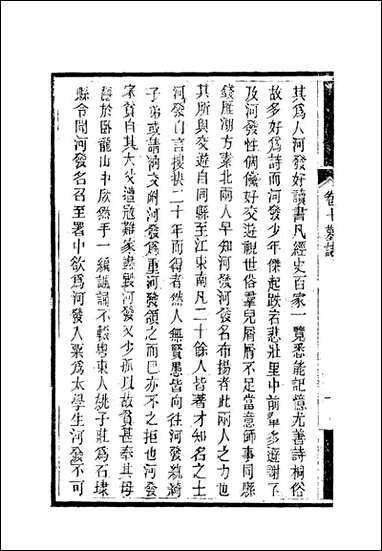 其爲人河發好讀書凡經史百家一覽悉能記憶尤善詩桐俗
故多好爲詩而河發少年傑起跌宕悲壯里中前輩多遜謝不
及河發性倜儻好交遊視世俗羣兒屑屑不足當意師事同縣
錢雁湖方素北兩人早知河發河發名布揚者此兩人之力也
其所與交遊自同縣至江東南凡二十餘人皆著才知名之士
河發自言搜抉二十年而得者然人無賢愚皆向往河發親
子弟或請納交附河發爲重河發頷之而已亦不之拒也河發
家貧自其大父遭寇難家盡毀河發又少孤以故貧甚奉其母
居於臥龍山中欣然手一編諷誦不輟粵東人姚子莊爲石埭
縣令聞河發名召至署中欲爲河發入粟爲太學生河發不可
卷十墓誌